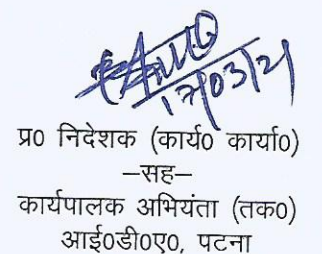 17/03/21
प्र० निदेशक (कार्य० कार्या०)
–सह–
कार्यपालक अभियंता (तक०)
आई०डी०ए०, पटना